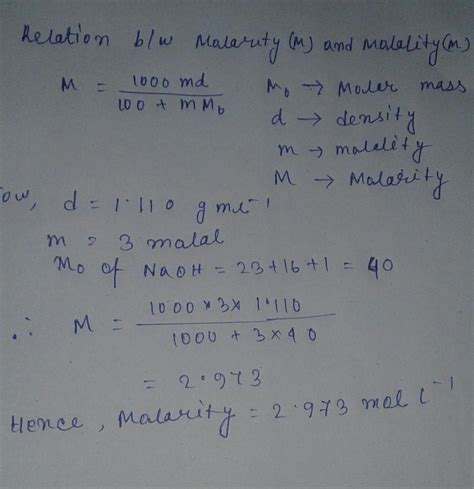 Relation b/w Malarity (M) and Malality (m)
M = 1000 md / 100 + m Mb
Mb → Moler mass
d → density
m → malelity
M → Malarity
ow, d = 1.110 g ml⁻¹
m = 3 malal
Mo of NaOH = 23+16+1 = 40
∴ M = 1000 × 3 × 1.110 / 1000 + 3 × 40
= 2.973
Hence, Malarity = 2.973 mol l⁻¹